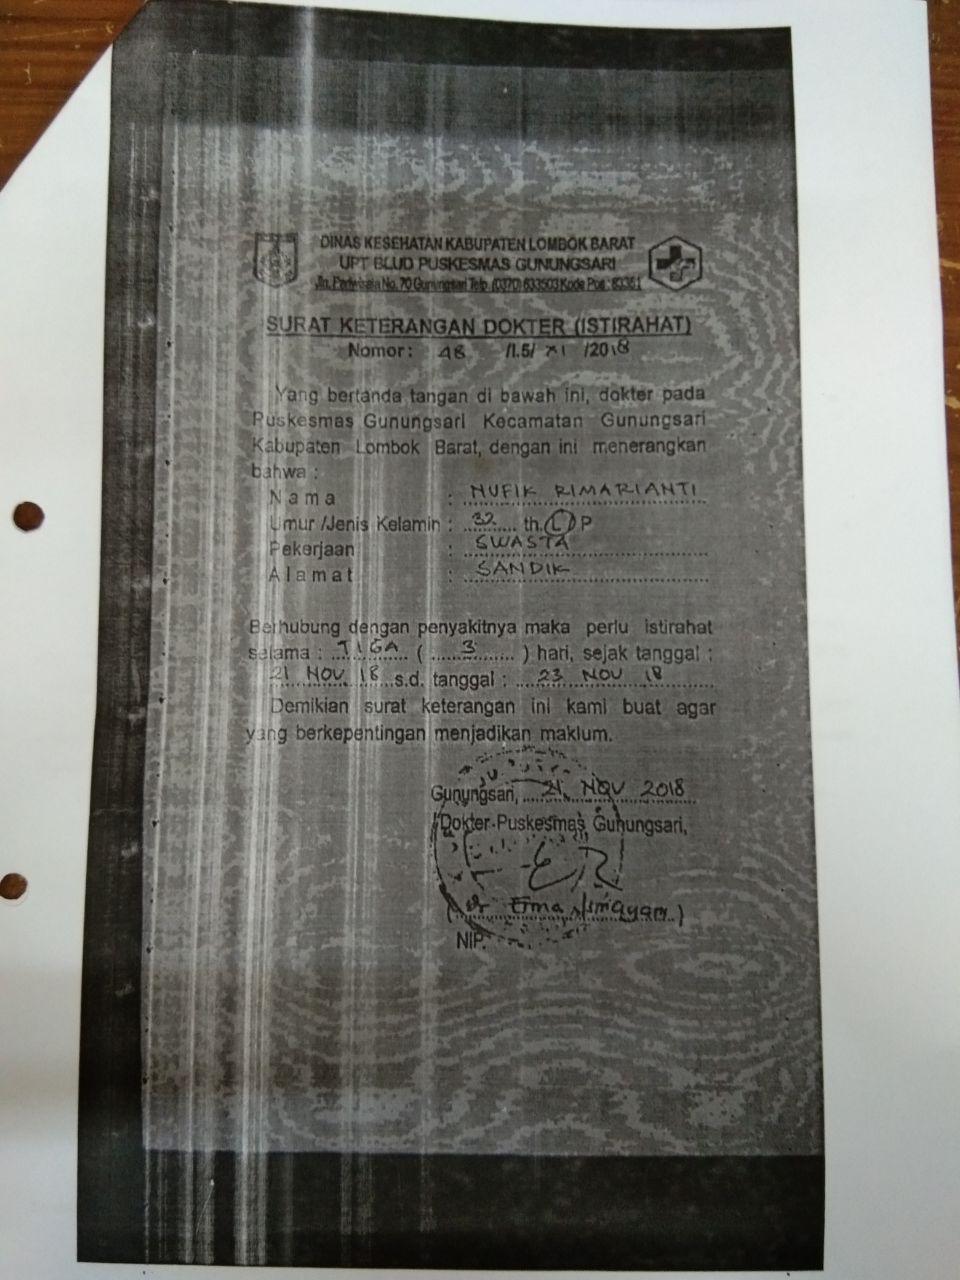 DINAS KESEHATAN KABUPATEN LOMBOK BARAT
UPT BLUD PUSKESMAS GUNUNGSARI
Jln. Pariwisata No. 70 Gunungsari Telp. (0370) 633503 Kode Pos : 83351
SURAT KETERANGAN DOKTER (ISTIRAHAT)
Nomor : 48 /1.5/ XI /2018
Yang bertanda tangan di bawah ini, dokter pada
Puskesmas Gunungsari Kecamatan Gunungsari
Kabupaten Lombok Barat, dengan ini menerangkan
bahwa :
Nama : NUFIK RIMARIANTI
Umur /Jenis Kelamin : 32 th. L P
Pekerjaan : SWASTA
Alamat : SANDIK
Berhubung dengan penyakitnya maka perlu istirahat
selama : TIGA ( 3 ) hari, sejak tanggal :
21 NOV 18 s.d. tanggal : 23 NOV 18
Demikian surat keterangan ini kami buat agar
yang berkepentingan menjadikan maklum.
Gunungsari, 21 NOV 2018
Dokter Puskesmas Gunungsari,
(dr Erma )
NIP.